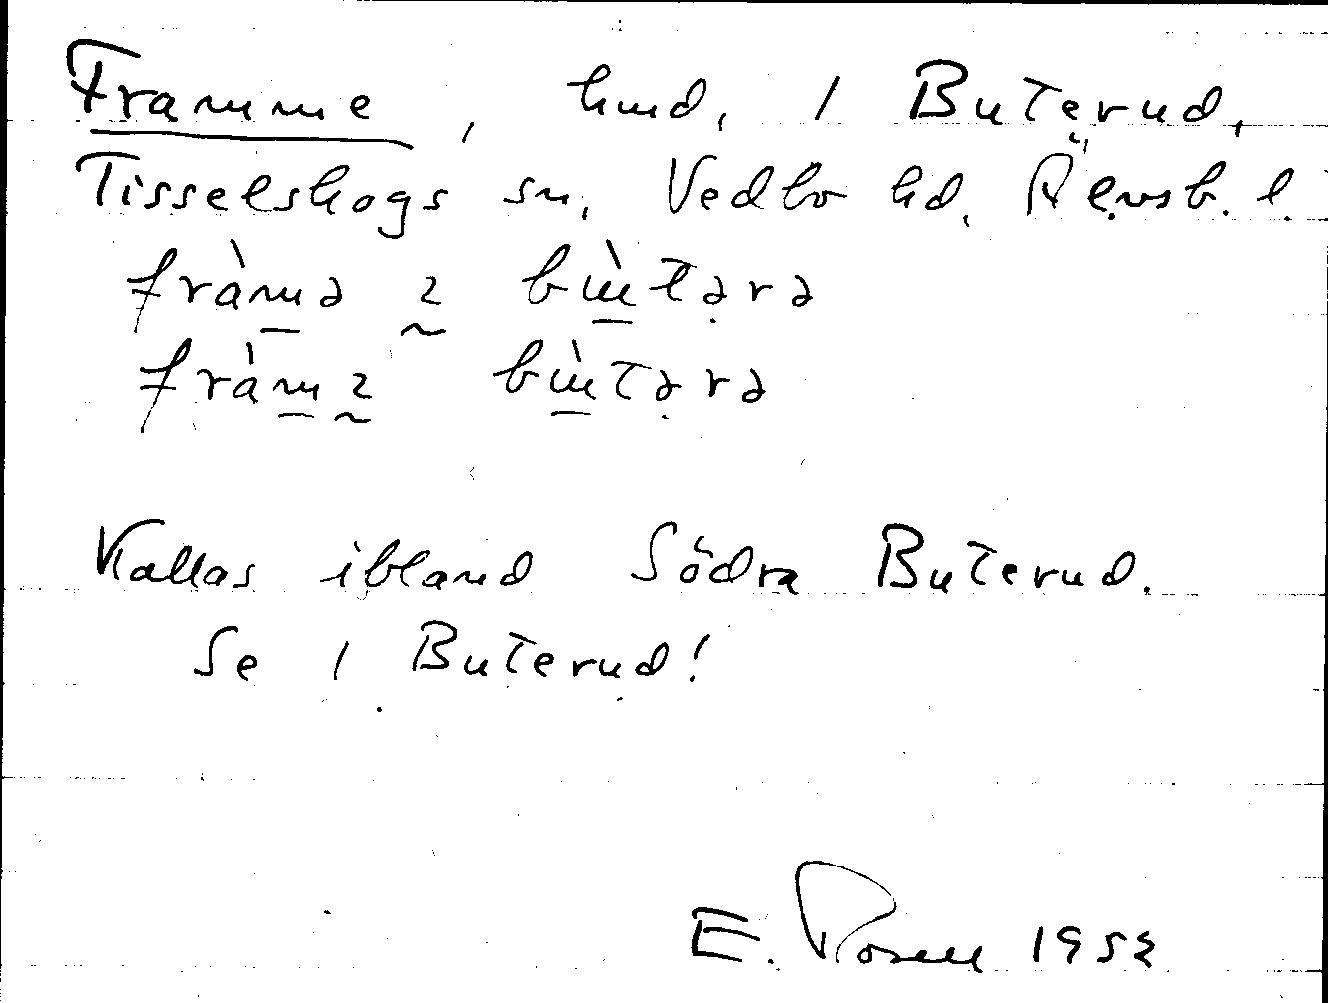 Framme, hmd, 1 Buterud,
Tisselskogs sn, Vedbo hd, Älvsb. l.
fràmə i bùtərə
fràm i bùtərə
Kallas ibland Södra Buterud.
Se 1 Buterud!
E. Rosell 1952